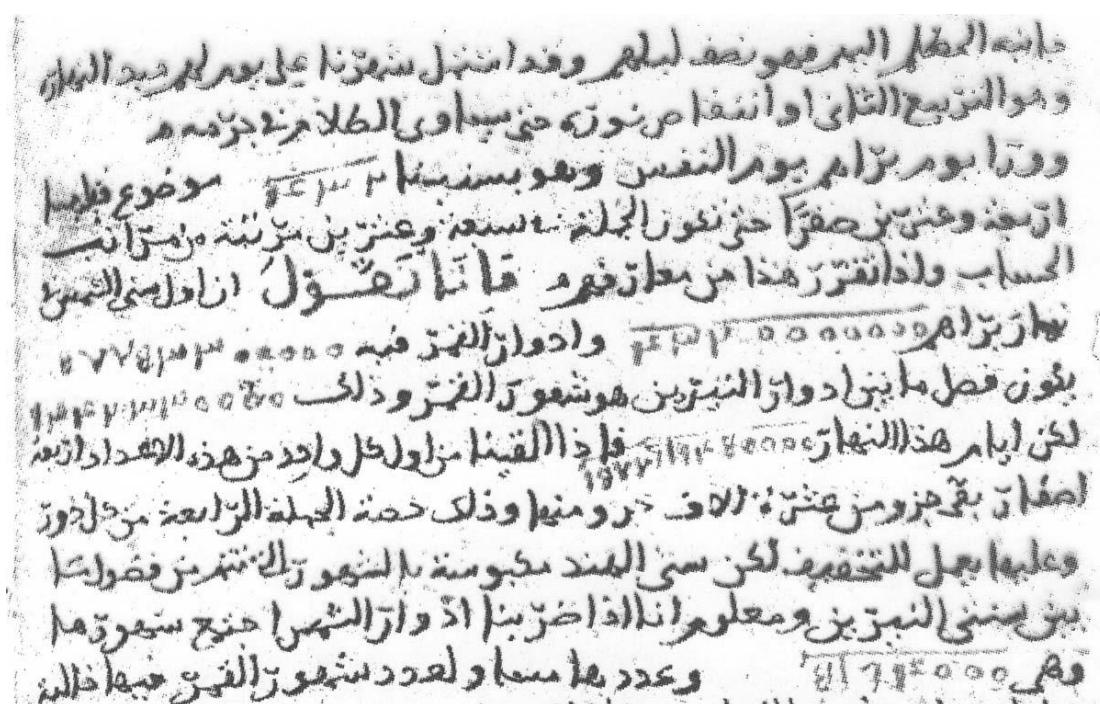 جانبه المظلم اليهم فهو نصف ليلهم وقد اشتمل شهرنا على يوم لهم النهار
وهو التربيع الثانى او انتقاص نوره حتى يساوى الظلام فى جرمه
وورا يوم براهم يوم النفس وهو بسنينا موضوع قبلها
اربعة وعشرين صفرا حتى تكون الجملة سبعة وعشرين مرتبة من مراتب
الحساب واذا تقرر هذا من معارفهم فانا نقول ان اول سنى الشمس
نهار براهم ٤٣٢٠٠٠٠٠٠٠ وادوار القمر فيه
يكون فضل ما بين ادوار النيرين هو شهور القمر وذلك
لكن ايام هذا النهار فاذا القينا من اول كل واحد من هذه الاعداد اربعة
اصفار بقى جزو من عشرة الاف جزو منها وذلك حصة الجملة الرابعة من كل دور
وعليها يعمل للتخفيف لكن سنى الهند مكبوسة بالشهور من فضول ما
بين سنتى النيرين ومعلوم انا اذا ضربنا ادوار الشمس شهورها
وهى وعددها مساو لعدد شهور القمر فيها خالية